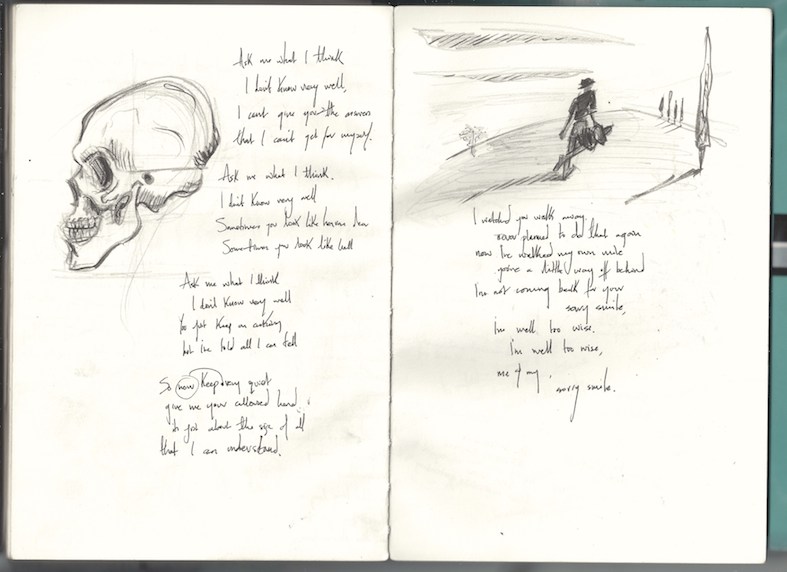 Ask me what I think
I don't know very well,
I can't give you the answer
that I can't get for myself.
Ask me what I think.
I don't know very well
Sometimes you look like heaven dear
Sometimes you look like hell
Ask me what I think
I don't know very well
You just keep on asking
but i've told all I can tell
So now keep very quiet
give me your calloused hand
is just about the size of all
that I can understand.
I watched you walk away.
never planned to do that again
now I've walked my own mile
you're a little way off behind
I'm not coming back for your
sorry smile,
i'm well too wise.
I'm well too wise,
me & my
sorry smile.